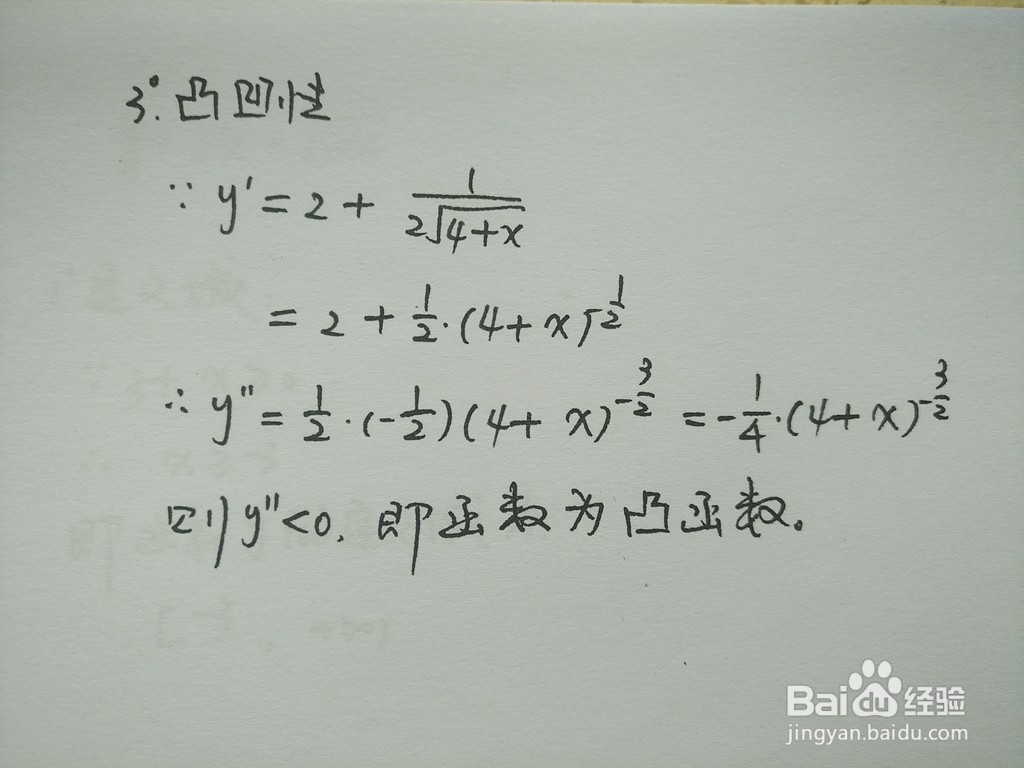 3°. 凸凹性
∵ y' = 2 + 1/(2√(4+x))
= 2 + 1/2·(4+x)^-1/2
∴ y'' = 1/2·(-1/2)(4+x)^-3/2 = -1/4·(4+x)^-3/2
则y''<0, 即函数为凸函数。
Baidu经验
jingyan.baidu.com